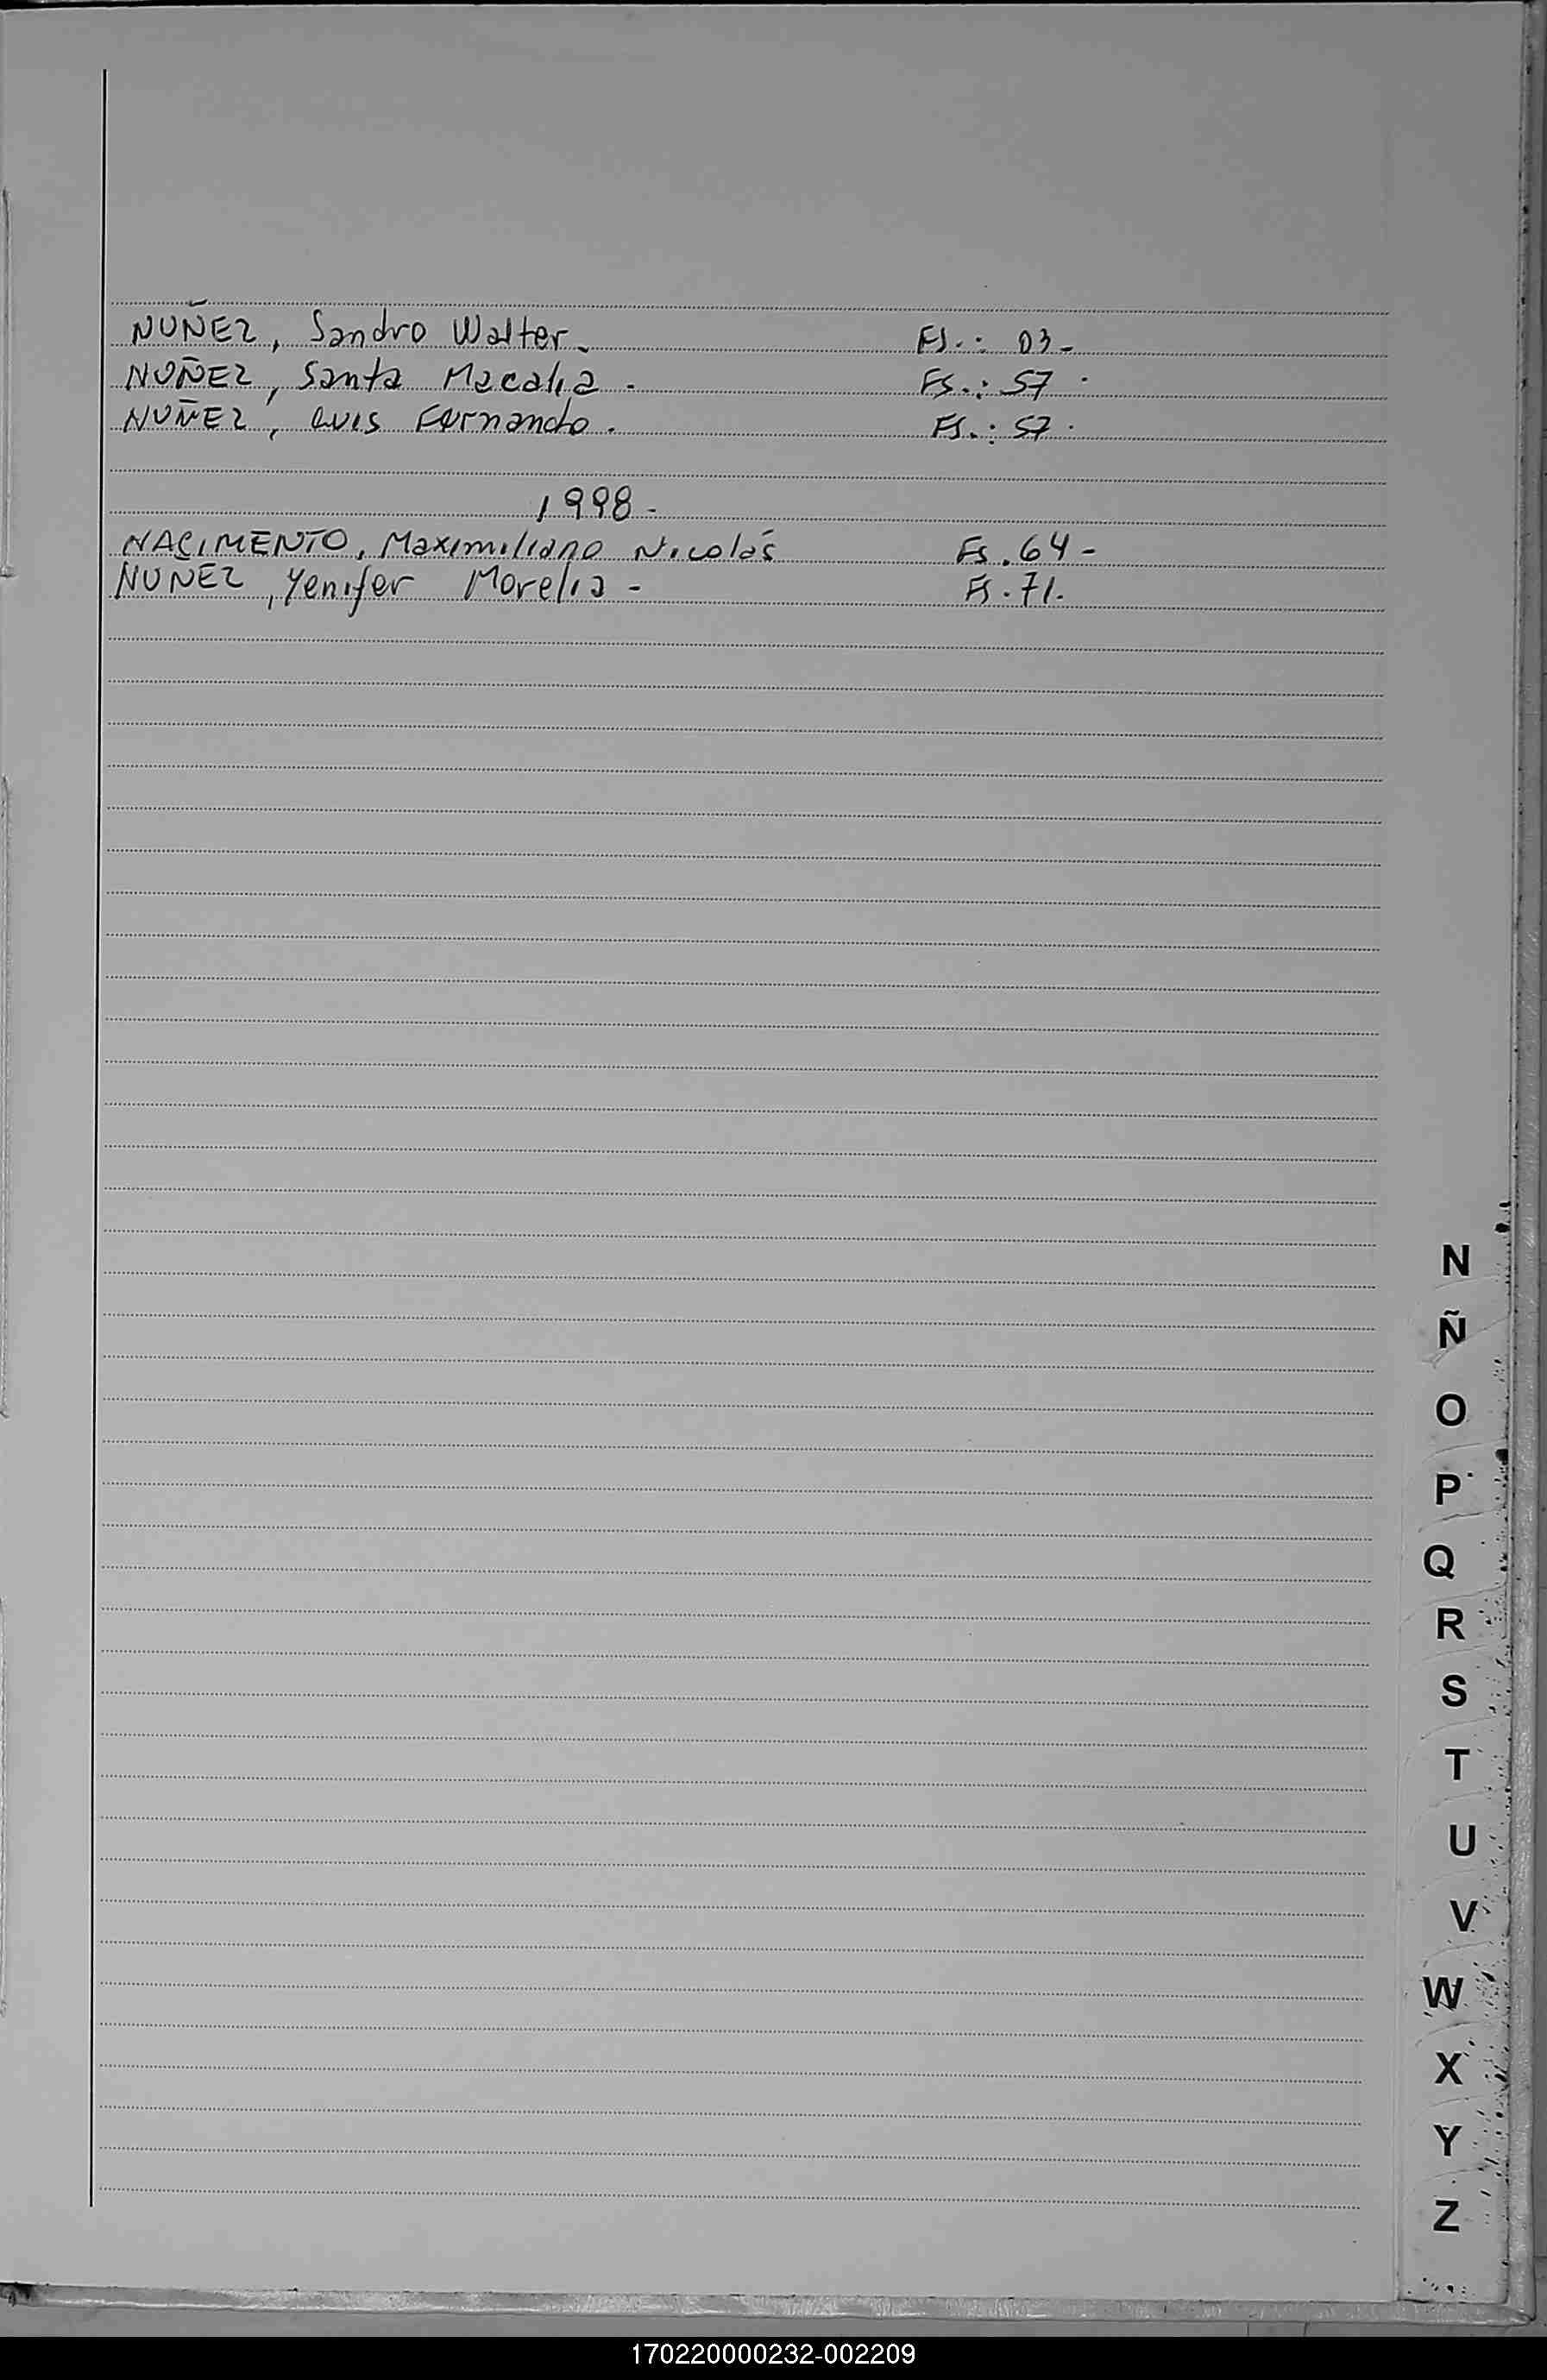 NUÑEZ, Sandro Walter. Fs.: 03-
NUÑEZ, Santa Macalia. Fs.: 57.
NUÑEZ, Luis Fernando. Fs.: 57.
1998-
NACIMENTO, Maximiliano Nicolás Fs. 64-
NUNEZ, Yenifer Morelia- Fs. 71.
N
Ñ
O
P
Q
R
S
T
U
V
W
X
Y
Z
170220000232-002209